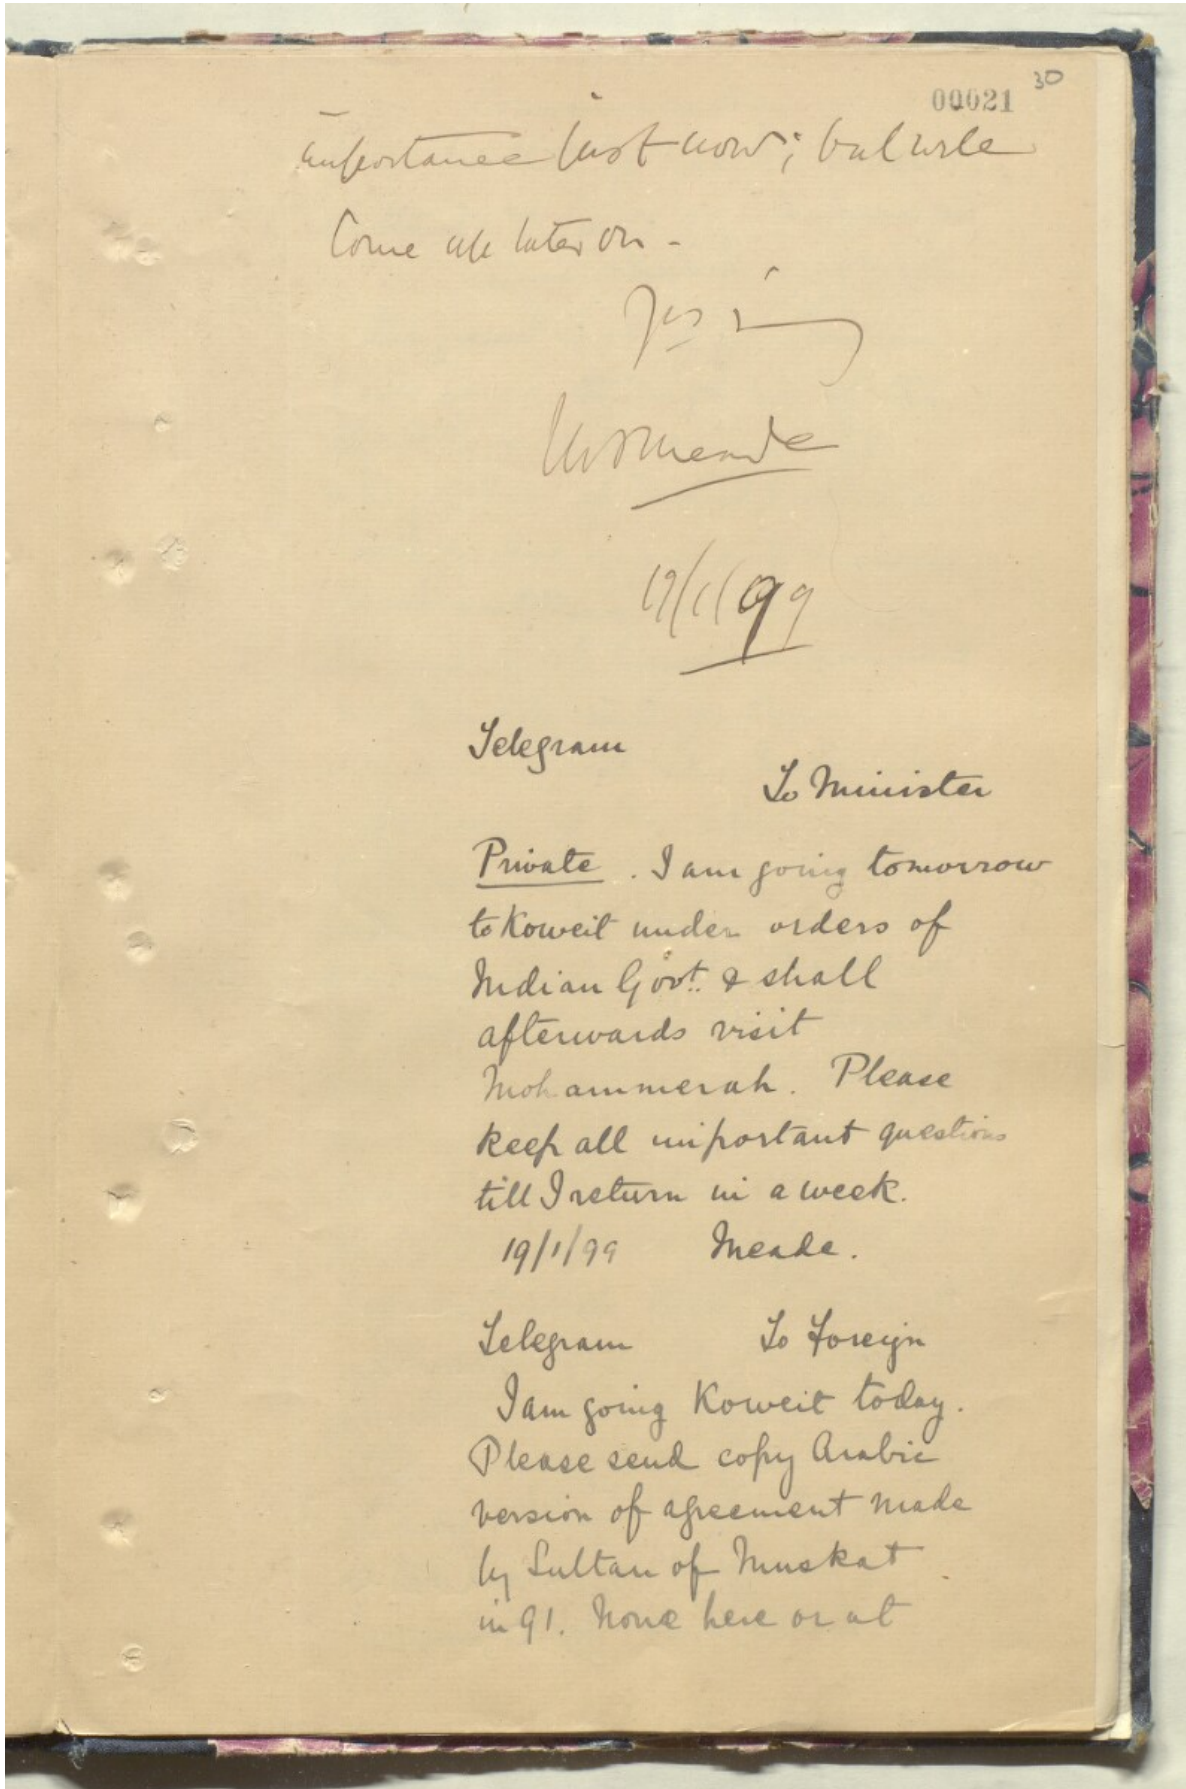 30
00021
importance just now; but will
come up later on -
Meade
19/1/99
Telegram
To Minister
Private. I am going tomorrow
to Koweit under orders of
Indian Govt. & shall
afterwards visit
Mohammerah. Please
keep all important questions
till I return in a week.
19/1/99 Meade.
Telegram To Foreign
I am going Koweit today.
Please send copy Arabic
version of agreement made
by Sultan of Muskat
in 91. None here or at